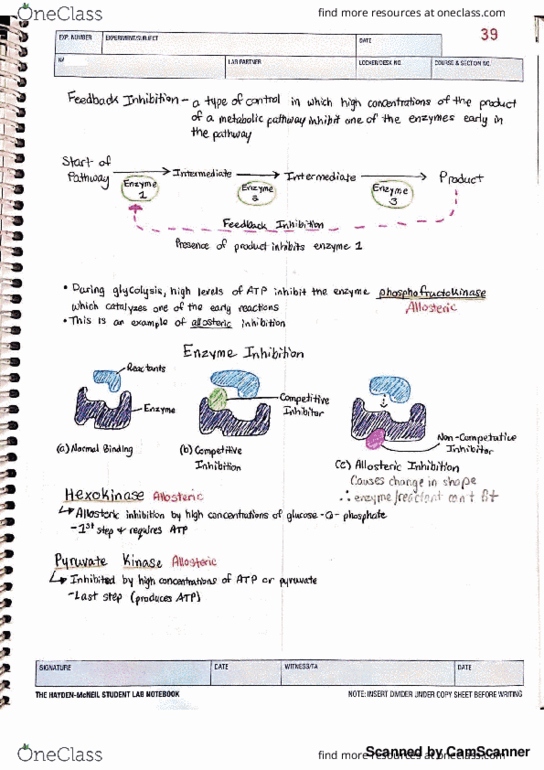 OneClass
find more resources at oneclass.com
EXP. NUMBER
EXPERIMENT/SUBJECT
DATE
39
LAB PARTNER
LOCKER/DESK NO.
COURSE & SECTION NO.
Feedback Inhibition - a type of control in which high concentrations of the product
of a metabolic pathway inhibit one of the enzymes early in
the pathway
Start of
Pathway
Intermediate
Intermediate
Product
Enzyme
1
Enzyme
Enzyme
3
Feedback Inhibition
Presence of product inhibits enzyme 1
• During glycolysis, high levels of ATP inhibit the enzyme phosphofructokinase
which catalyzes one of the early reactions
Allosteric
• This is an example of allosteric inhibition
Enzyme Inhibition
Reactants
Enzyme
Competitive
Inhibitor
Inhibitor
(a) Normal Binding
(b) Competitive
Inhibition
(c) Allosteric Inhibition
Causes change in shape
∴ enzyme/reactant can't fit
Hexokinase Allosteric
↳ Allosteric inhibition by high concentrations of glucose phosphate
- 1st step + requires ATP
Pyruvate Kinase Allosteric
↳ Inhibited by high concentrations of ATP or pyruvate
- Last step (produces ATP)
SIGNATURE
DATE
WITNESS/TA
DATE
THE HAYDEN-McNEIL STUDENT LAB NOTEBOOK
NOTE: INSERT DIVIDER UNDER COPY SHEET BEFORE WRITING
OneClass
find more resources at oneclass.com
Scanned by CamScanner